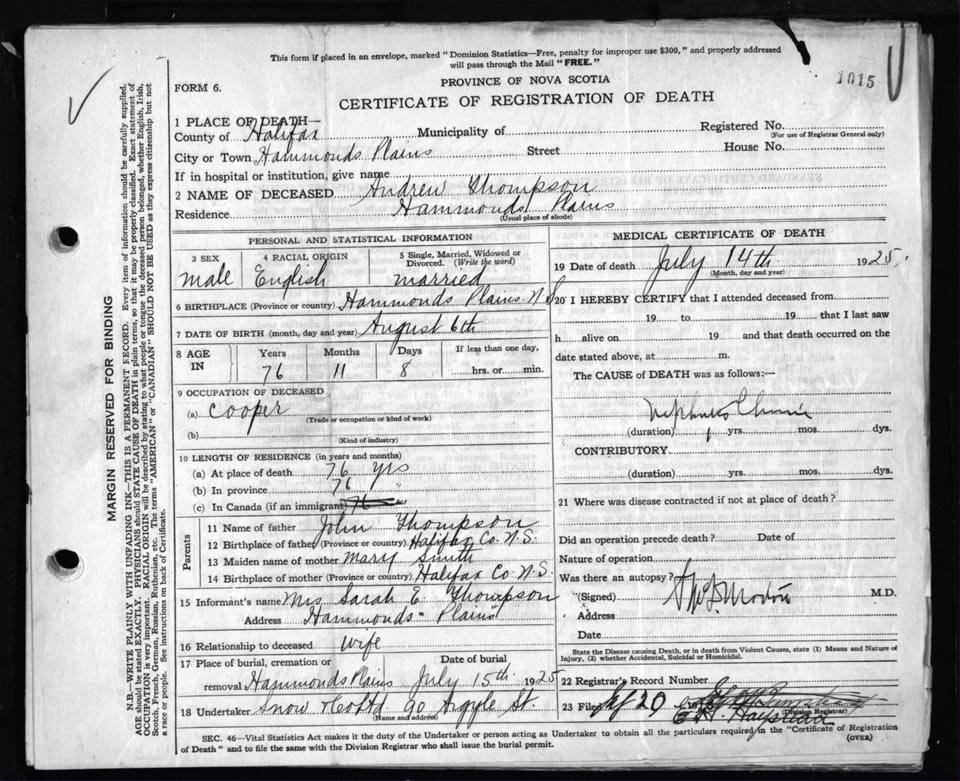 This form if placed in an envelope, marked "Dominion Statistics—Free, penalty for improper use $300," and properly addressed
will pass through the Mail "FREE."
1015
FORM 6.
PROVINCE OF NOVA SCOTIA
CERTIFICATE OF REGISTRATION OF DEATH
1 PLACE OF DEATH—
County of Halifax Municipality of Registered No.
(For use of Registrar General only)
City or Town Hammonds Plains Street House No.
If in hospital or institution, give name
2 NAME OF DECEASED Andrew Thompson
Residence Hammonds Plains
(Usual place of abode)
PERSONAL AND STATISTICAL INFORMATION
3 SEX 4 RACIAL ORIGIN 5 Single, Married, Widowed or Divorced. (Write the word)
male English married
6 BIRTHPLACE (Province or country) Hammonds Plains N.S.
7 DATE OF BIRTH (month, day and year) August 6th
8 AGE IN Years Months Days If less than one day,
76 11 8 hrs. or min.
9 OCCUPATION OF DECEASED
(a) Cooper
(Trade or occupation or kind of work)
(b)
(Kind of industry)
10 LENGTH OF RESIDENCE (in years and months)
(a) At place of death 76 yrs
(b) In province 76 "
(c) In Canada (if an immigrant) 76 "
Parents
11 Name of father John Thompson
12 Birthplace of father (Province or country) Halifax Co. N.S.
13 Maiden name of mother Mary Smith
14 Birthplace of mother (Province or country) Halifax Co. N.S.
15 Informant's name Mrs Sarah E. Thompson
Address Hammonds Plains
16 Relationship to deceased Wife
17 Place of burial, cremation or Date of burial
removal Hammonds Plains July 15th 1925
18 Undertaker Snow & Co Ltd 90 Argyle St.
(Name and address)
MEDICAL CERTIFICATE OF DEATH
19 Date of death July 14th 1925.
(Month, day and year)
20 I HEREBY CERTIFY that I attended deceased from
19 to 19 that I last saw
h alive on 19 and that death occurred on the
date stated above, at m.
The CAUSE of DEATH was as follows:—
Nephritis Chronic
(duration) 1 yrs. mos. dys.
CONTRIBUTORY
(duration) yrs. mos. dys.
21 Where was disease contracted if not at place of death?
Did an operation precede death? Date of
Nature of operation
Was there an autopsy?
(Signed) Morton M.D.
Address
Date
State the Disease causing Death, or in death from Violent Causes, state (1) Means and Nature of
Injury, (2) whether Accidental, Suicidal or Homicidal.
22 Registrar's Record Number
23 Filed 20 19
(Division Registrar)
SEC. 46—Vital Statistics Act makes it the duty of the Undertaker or person acting as Undertaker to obtain all the particulars required in the "Certificate of Registration
of Death" and to file the same with the Division Registrar who shall issue the burial permit.
(OVER)
MARGIN RESERVED FOR BINDING
N.B.—WRITE PLAINLY WITH UNFADING INK—THIS IS A PERMANENT RECORD. Every item of information should be carefully supplied.
AGE should be stated EXACTLY. PHYSICIANS should STATE CAUSE OF DEATH in plain terms, so that it may be properly classified. Exact statement of
OCCUPATION is very important. RACIAL ORIGIN will be described by stating to what people or tongue the deceased person belonged, whether English, Irish,
Scotch, French, German, Russian, Ruthenian, etc. The terms "AMERICAN" or "CANADIAN" SHOULD NOT BE USED as they express citizenship but not
a race or people. See instructions on back of Certificate.